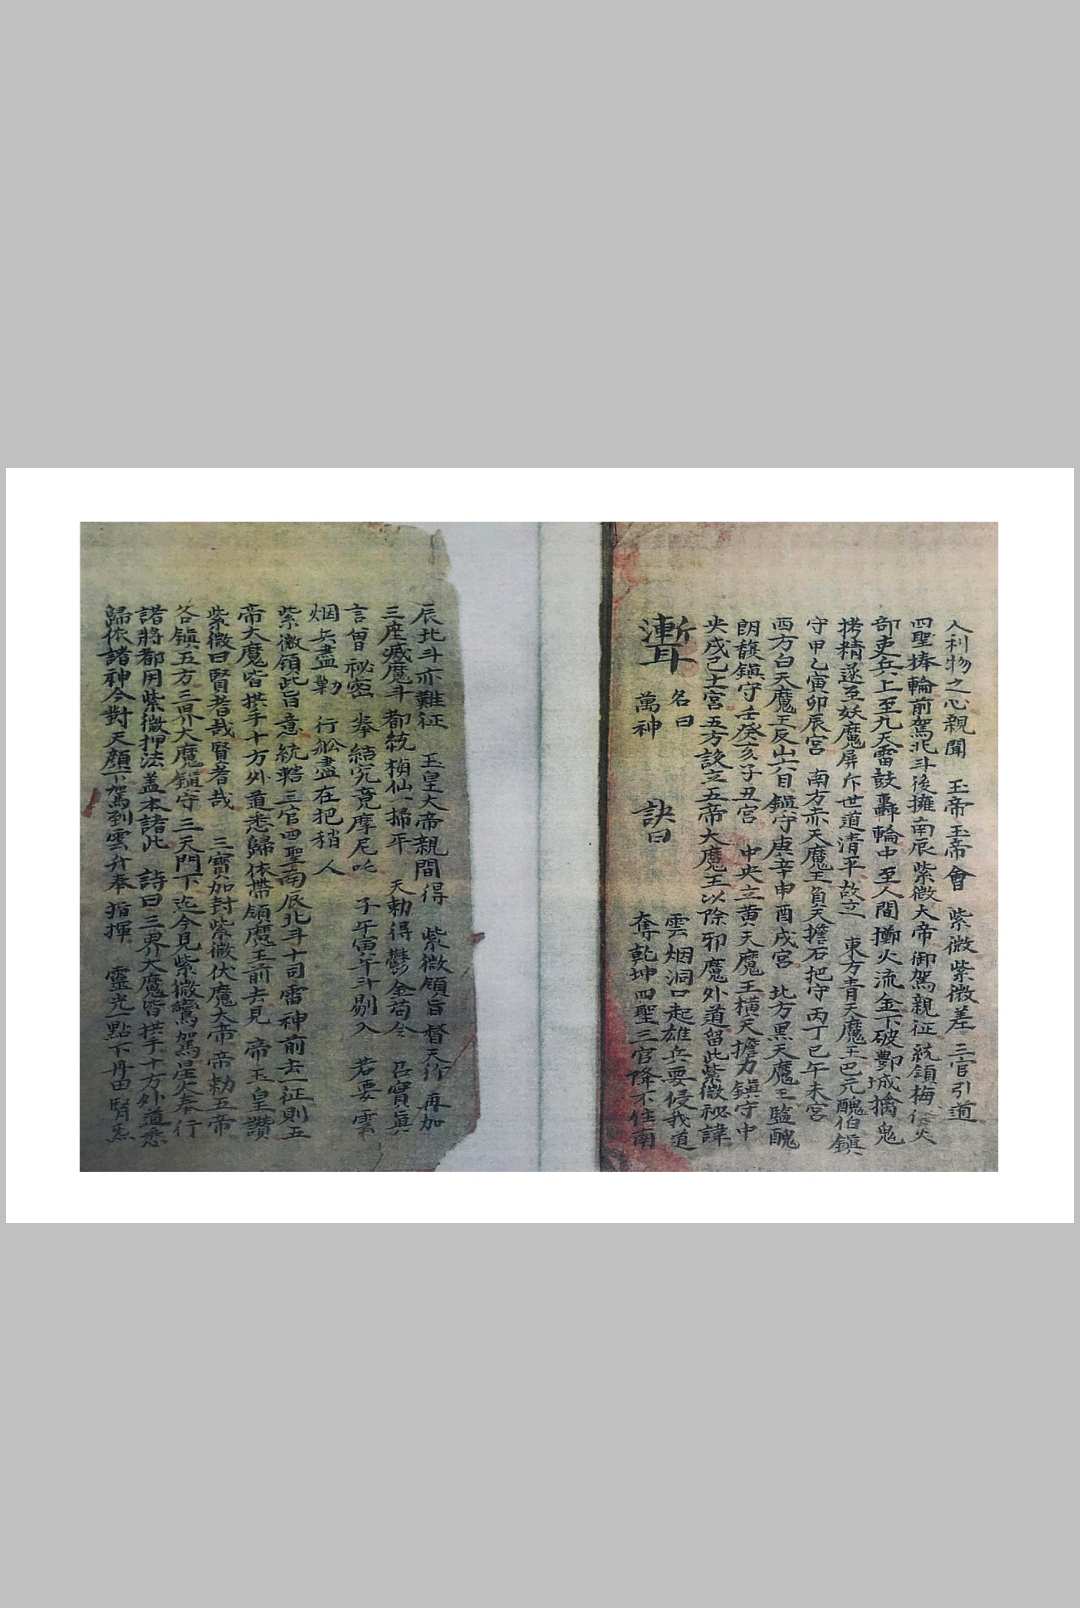 人利物之心親聞 玉帝玉帝會 紫微紫微差 三官引道
四聖捧輪前駕北斗後擁南辰紫微大帝御駕親征統領梅
部吏兵上至九天雷鼓轟輪中至人間擲火流金下破酆城擒鬼
拷精遂至妖魔屏斥世道清平故立 東方青天魔王巴元醜伯鎮
守甲乙寅卯辰宮 南方赤天魔王負天擔石把守丙丁巳午未宮
西方白天魔王反山六目鎮守庚辛申酉戌宮 北方黑天魔王監醜
朗馥鎮守壬癸亥子丑宮 中央立黃天魔王橫天擔力鎮守中
央戊己土宮五方設立五帝大魔王以除邪魔外道留此紫微秘諱
名曰
萬神
訣曰
雲烟洞口起雄兵要侵我道
奪乾坤四聖三官降不住南
辰北斗亦難征 玉皇大帝親間得 紫微領旨督天行 再加
三座臧魔斗 都統梢仙一掃平 天勅得鬱金苟令 召寶真
言曾秘密 拳結究竟摩尼吒 子午寅午斗剔入 若要雲
烟兵盡勦 行船盡在把梢人
紫微領此旨意統轄三官四聖南辰北斗十司雷神前去一征則五
帝大魔皆拱手十方外道悉歸依帶領魔王前去見 帝玉皇讚
紫微曰賢者哉賢者哉 三寶加封紫微伏魔大帝帝勅五帝
各鎮五方三界大魔鎮守三天門下迄今見紫微鸞駕 奉行
諸將都用紫微押法蓋本諸此 詩曰三界大魔皆拱手十方外道悉
歸依諸神今對天顏下駕到雲 奉指揮 靈光一點下丹田腎